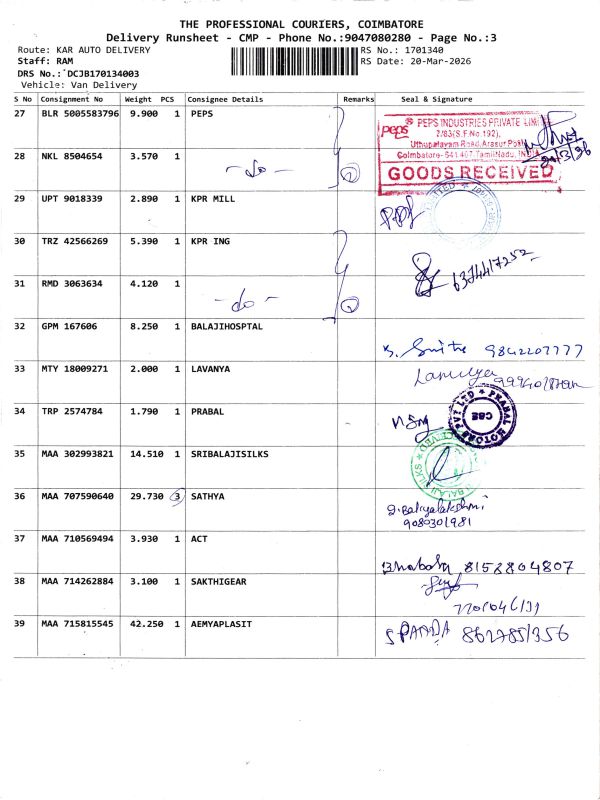 THE PROFESSIONAL COURIERS, COIMBATORE
Delivery Runsheet - CMP - Phone No.:9047080280 - Page No.:3
Route: KAR AUTO DELIVERY RS No.: 1701340
Staff: RAM RS Date: 20-Mar-2026
DRS No.: DCJB170134003
Vehicle: Van Delivery
S No Consignment No Weight PCS Consignee Details Remarks Seal & Signature
27 BLR 5005583796 9.900 1 PEPS
peps PEPS INDUSTRIES PRIVATE LIMI
2/83(S.F.No.192),
Uthupalayam Road, Arasur Post
Coimbatore-641 407. TamilNadu, INDIA
GOODS RECEIVED
28 NKL 8504654 3.570 1 -do- 2
29 UPT 9018339 2.890 1 KPR MILL
30 TRZ 42566269 5.390 1 KPR ING
6374417252
31 RMD 3063634 4.120 1 -do- 2
32 GPM 167606 8.250 1 BALAJIHOSPTAL
9842207777
33 MTY 18009271 2.000 1 LAVANYA
Lavanya
34 TRP 2574784 1.790 1 PRABAL
PRABAL MOTORS PVT LTD
CBE
35 MAA 302993821 14.510 1 SRIBALAJISILKS
36 MAA 707590640 29.730 3 SATHYA
9080301981
37 MAA 710569494 3.930 1 ACT
8152804807
38 MAA 714262884 3.100 1 SAKTHIGEAR
39 MAA 715815545 42.250 1 AEMYAPLASIT
S PANDA 8627851356